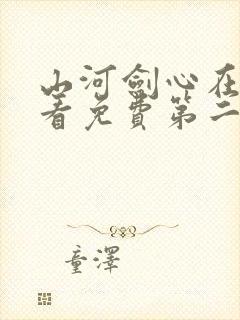 山河劍心在
看免費第二
童澤